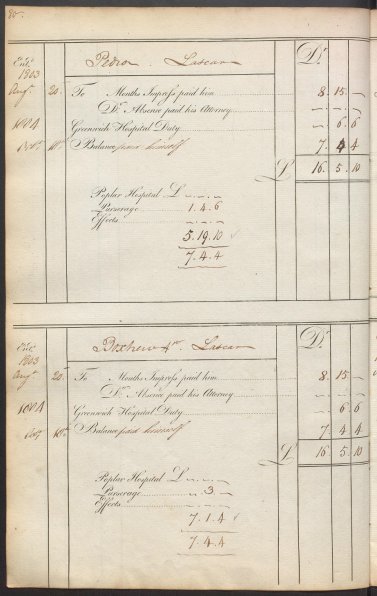 Pedro . Lascar
Dr.
1803
Augt. 20. To Months Imprest paid him 8. 15. —
Do. Absence paid his Attorney
1804 Greenwich Hospital Duty — 6. 6
Octr. 10th Balance paid himself 7. 4 4
£ 16. 5. 10
Poplar Hospital £ -. -. -
Purserage 1. 4. 6
Effects -. -. -
5. 19. 10
7. 4. 4
Lascar
Dr.
1803
Augt. 20. To Months Imprest paid him 8. 15 —
Do. Absence paid his Attorney
1804 Greenwich Hospital Duty — 6 6
10th Balance paid himself 7 4 4
£ 16 5. 10
Poplar Hospital £ -. -. -
Purserage -. 3. -
Effects -. -. -
7. 1. 4
7. 4. 4